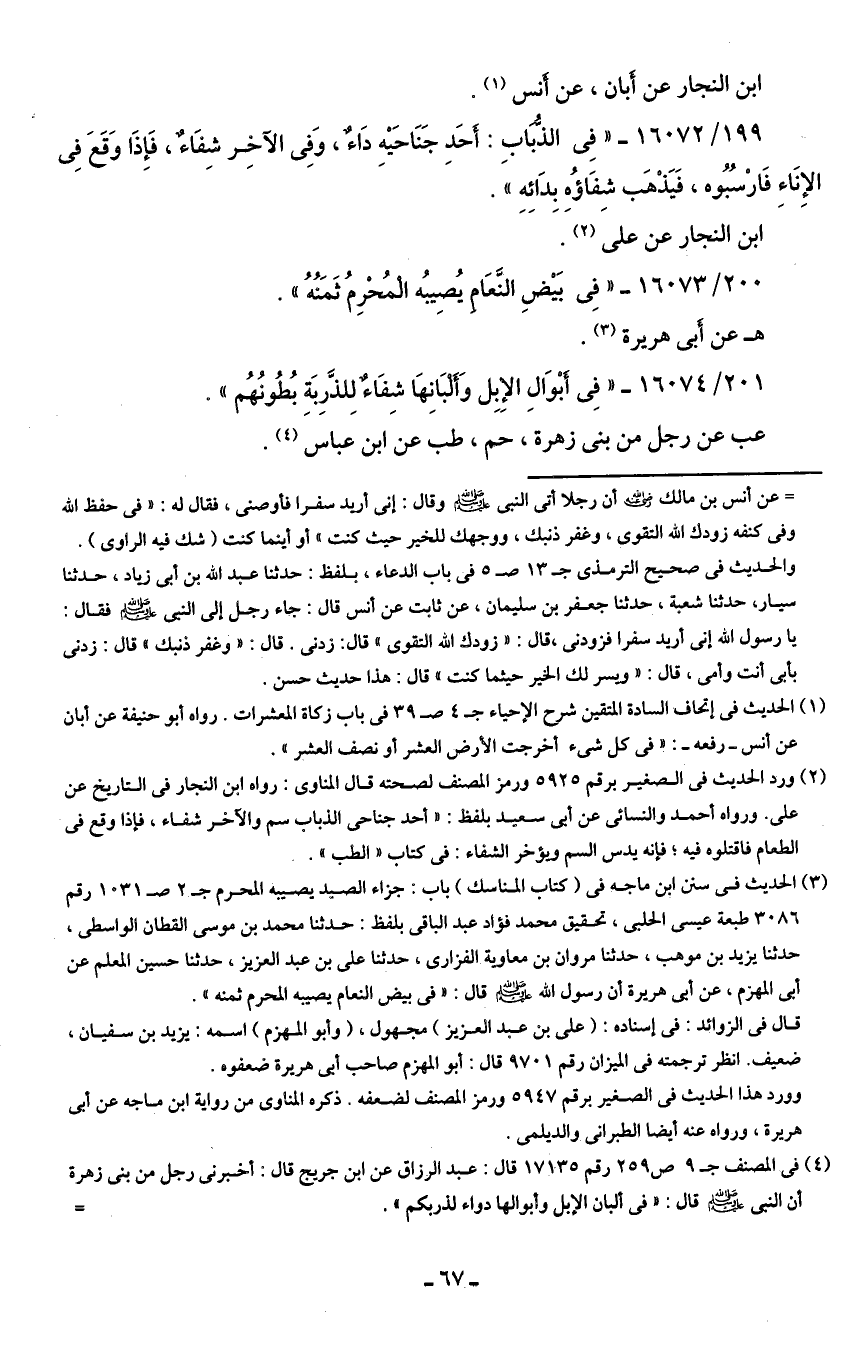 ابن النجار عن أبان ، عن أنس (١) .
١٩٩/ ١٦٠٧٢ ـ « فِى الذُّبَابِ : أَحَدِ جَنَاحَيْهِ دَاءٌ ، وَفِى الآخِرِ شِفَاءٌ ، فَإِذَا وَقَعَ فِى
الإِنَاءِ فَارْسُبُوه ، فَيَذْهَب شِفَاؤُهِ بِدَائِهِ » .
ابن النجار عن على (٢) .
٢٠٠/ ١٦٠٧٣ ـ « فِى بَيْضِ النَّعَامِ يُصِيبُه الْمُحْرِمُ ثَمَنُهُ » .
هـ عن أَبى هريرة (٣) .
٢٠١/ ١٦٠٧٤ ـ « فِى أَبْوَالِ الإِبِلِ وَأَلْبَانِهَا شِفَاءٌ لِلذَّرِبَةِ بُطُونُهُم » .
عب عن رجل من بنى زهرة ، حم ، طب عن ابن عباس (٤) .
= عن أنس بن مالك رضي الله عنه أن رجلا أتى النبى ﷺ وقال : إنى أريد سفرا فأوصنى ، فقال له : « فى حفظ الله
وفى كنفه زودك الله التقوى ، وغفر ذنبك ، ووجهك للخير حيث كنت » أو أينما كنت ( شك فيه الراوى ) .
والحديث فى صحيح الترمذى جـ ١٣ صـ ٥ فى باب الدعاء ، بلفظ : حدثنا عبد الله بن أبى زياد ، حدثنا
سيار، حدثنا شعبة ، حدثنا جعفر بن سليمان ، عن ثابت عن أنس قال : جاء رجل إلى النبى ﷺ فقال :
يا رسول الله إنى أريد سفرا فزودنى ،قال : « زودك الله التقوى » قال: زدنى . قال : « وغفر ذنبك » قال : زدنى
بأبى أنت وأمى ، قال : « ويسر لك الخير حيثما كنت » قال : هذا حديث حسن .
(١) الحديث فى إتحاف السادة المتقين شرح الإحياء جـ ٤ صـ ٣٩ فى باب زكاة المعشرات . رواه أبو حنيفة عن أبان
عن أنس ـ رفعه ـ : « فى كل شىء أخرجت الأرض العشر أو نصف العشر » .
(٢) ورد الحديث فى الصغير برقم ٥٩٢٥ ورمز المصنف لصحته قال المناوى : رواه ابن النجار فى التاريخ عن
على. ورواه أحمد والنسائى عن أبى سعيد بلفظ : « أحد جناحى الذباب سم والآخر شفاء ، فإذا وقع فى
الطعام فاقتلوه فيه ؛ فإنه يدس السم ويؤخر الشفاء : فى كتاب « الطب » .
(٣) الحديث فى سنن ابن ماجه فى ( كتاب المناسك ) باب : جزاء الصيد يصيبه المحرم جـ ٢ صـ ١٠٣١ رقم
٣٠٨٦ طبعة عيسى الحلبى ، تحقيق محمد فؤاد عبد الباقى بلفظ : حدثنا محمد بن موسى القطان الواسطى ،
حدثنا يزيد بن موهب ، حدثنا مروان بن معاوية الفزارى ، حدثنا على بن عبد العزيز ، حدثنا حسين المعلم عن
أبى المهزم ، عن أبى هريرة أن رسول الله ﷺ قال : « فى بيض النعام يصيبه المحرم ثمنه » .
قال فى الزوائد : فى إسناده : ( على بن عبد العزيز ) مجهول ، ( وأبو المهزم ) اسمه : يزيد بن سفيان ،
ضعيف. انظر ترجمته فى الميزان رقم ٩٧٠١ قال : أبو المهزم صاحب أبى هريرة ضعفوه .
وورد هذا الحديث فى الصغير برقم ٥٩٤٧ ورمز المصنف لضعفه . ذكره المناوى من رواية ابن ماجه عن أبى
هريرة ، ورواه عنه أيضا الطبرانى والديلمى .
(٤) فى المصنف جـ ٩ ص٢٥٩ رقم ١٧١٣٥ قال : عبد الرزاق عن ابن جريج قال : أخبرنى رجل من بنى زهرة
أن النبى ﷺ قال : « فى ألبان الإبل وأبوالها دواء لذربكم » . =
ـ ٦٧ ـ